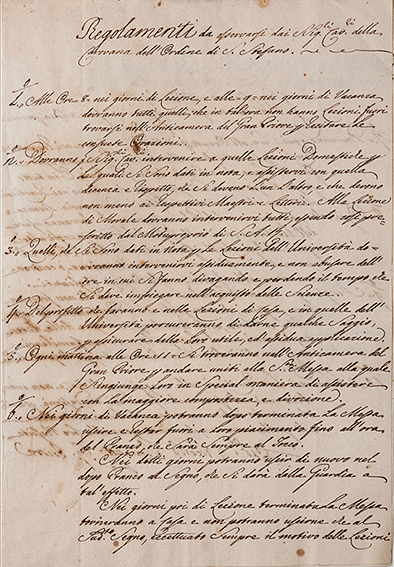 Regolamenti da osservarsi dai Sig.ri Cav.ri della
Carovana dell'Ordine di S. Stefano.
1.° Alle Ore 8. nei giorni di Lezione, e alle 9. nei giorni di Vacanza
dovranno tutti quelli, che in tal'ora non hanno Lezioni fuori
trovarsi nell'Anticamera del Gran Priore p. recitare le
consuete Orazioni.
2.° Dovranno i Sig. Cav. intervenire a quelle Lezioni Domestiche p.
le quali si sono dati in nota, e assistervi con quella
decenza e rispetto, che si devono l'un l'altro e che devono
non meno ai rispettivi Maestri e Lettori. Alla Lezione
di Morale dovranno intervenirvi tutti, essendo così pre-
scritto dal Motuproprio di S. A. R.
3.° Quelli, che si sono dati in Nota p. le Lezioni dell'Università do-
veranno intervenirvi assiduamente, e non abusare dell'
ore in cui si fanno divagando e perdendo il tempo che
si deve impiegare nell'acquisto delle Scienze.
4.° Del profitto che faranno e nelle Lezioni di Casa, e in quelle dell'
Università procureranno di darne qualche Saggio,
p. assicurare della loro utile, ed assidua applicazione.
5.° Ogni mattina alle Ore 11. si troveranno nell'Anticamera del
Gran Priore p. andare uniti alla S. Messa alla quale
s'ingiunge loro in special maniera di assistere
con la maggiore compostezza, e divozione.
6.° Nei giorni di Vacanza potranno dopo terminata la Messa
uscire e restar fuori a loro piacimento fino all'ora
del Pranzo, che sarà sempre al Tocco.
Nei detti giorni potranno uscir di nuovo nel
dopo Pranzo al Segno, che si darà dalla Guardia a
tal'effetto.
Nei giorni poi di Lezione terminata la Messa
torneranno a Casa e non potranno uscirne che al
Segno, eccettuato sempre il motivo delle Lezioni